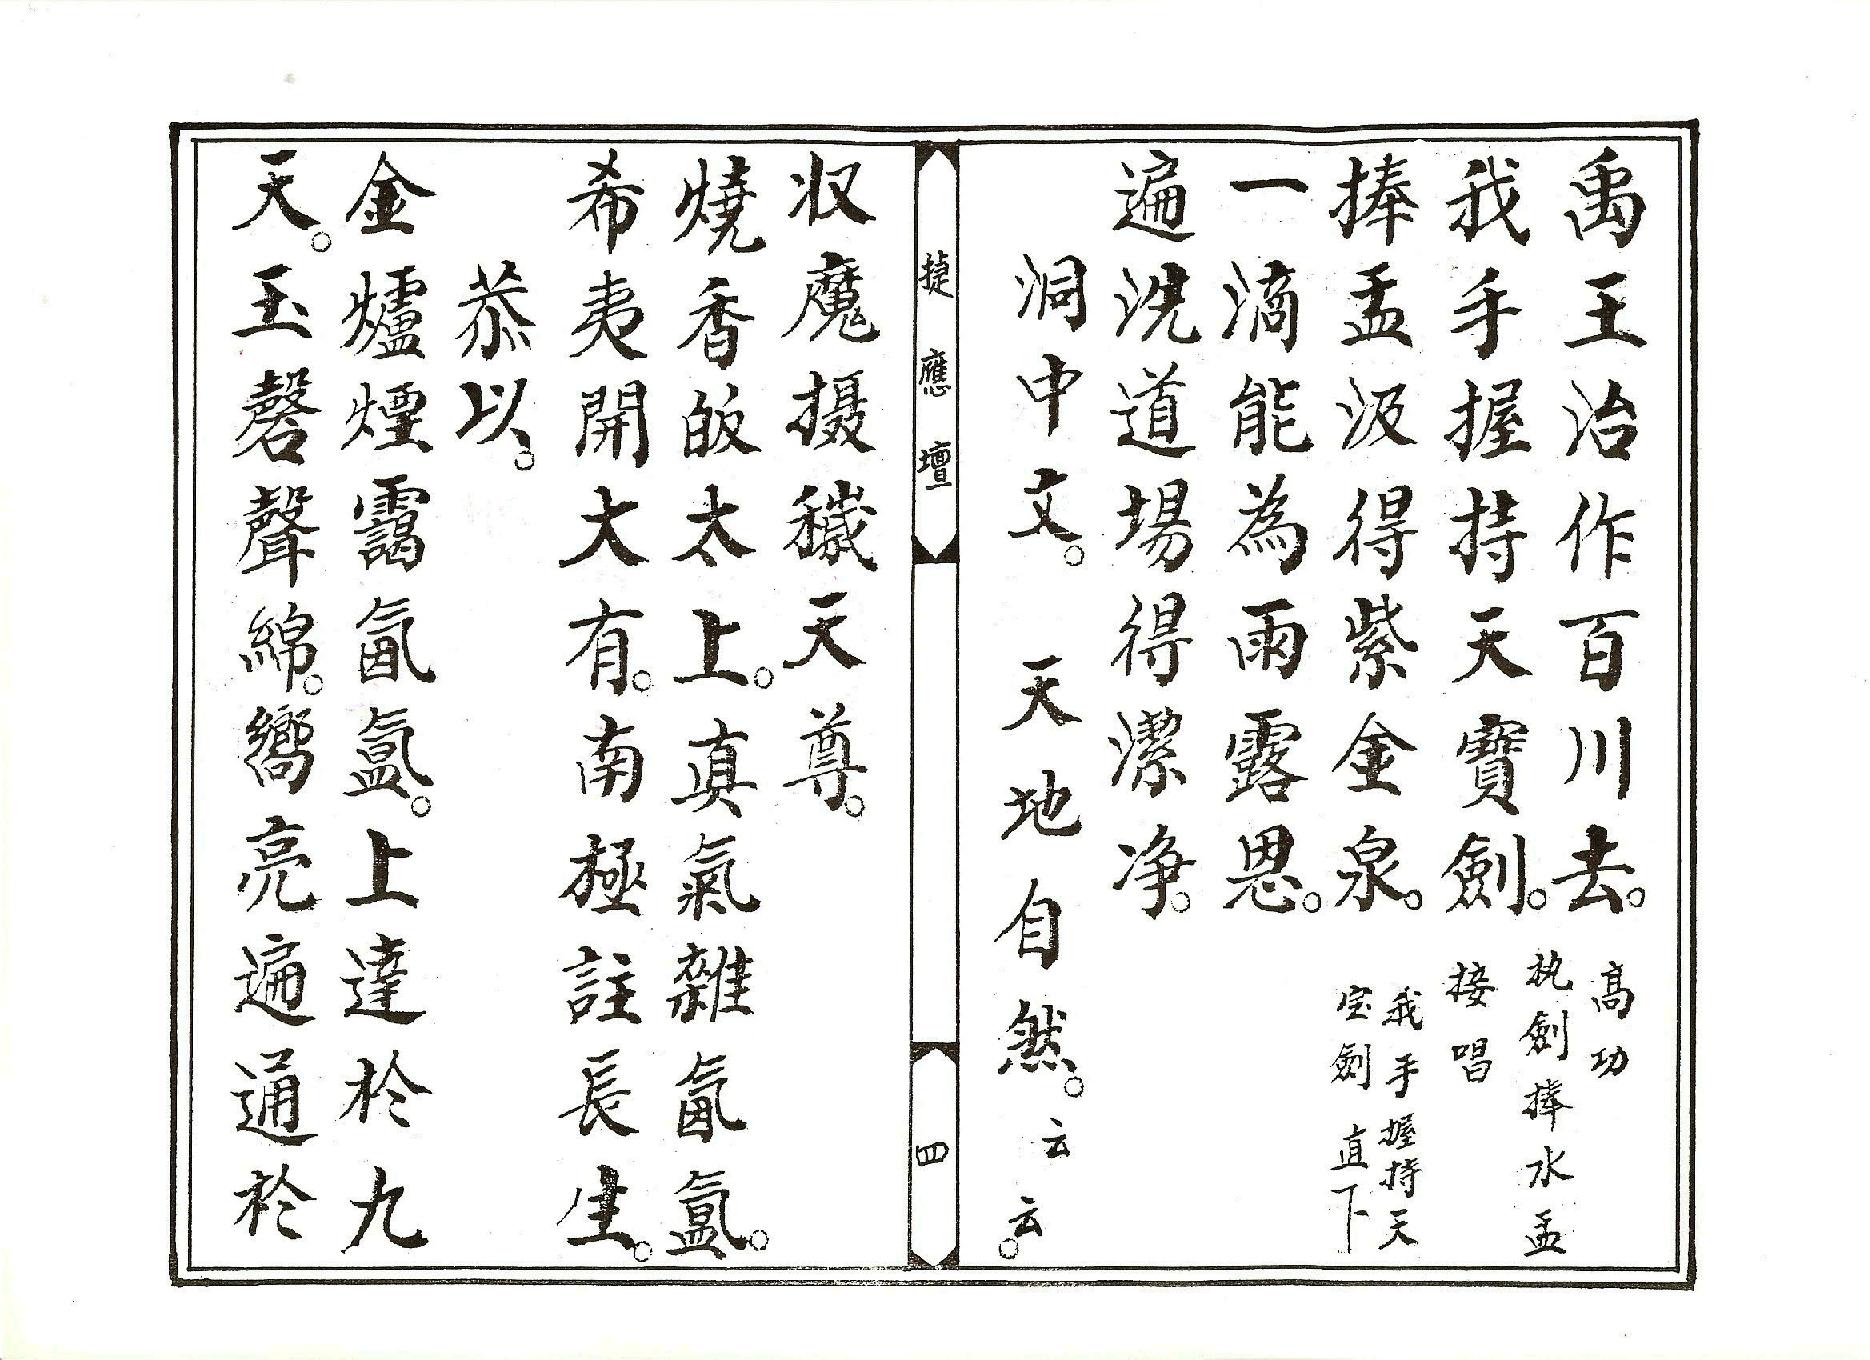 禹王治作百川去。
高功
執劍捧水盂
我手握持天寶劍。
接唱
捧盂汲得紫金泉。
我手握持天
宝劍直下
一滴能為雨露恩。
遍洗道場得潔净。
洞中文。天地自然。云云。
捷應壇
四
収魔摄穢天尊。
燒香皈太上。真氣雜氤氳。
希夷開大有。南極註長生。
恭以。
金爐煙靄氤氳。上達於九
天。玉磬聲綿。嚮亮遍通於